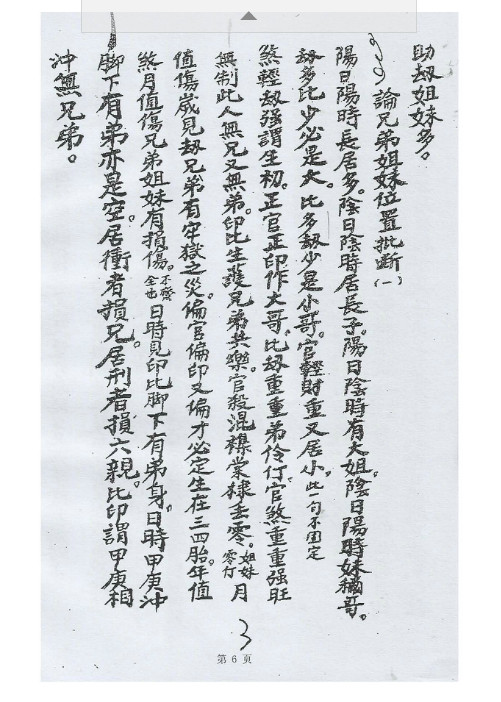 助刼姐妹多。
論兄弟姐妹位置批断(一)
陽日陽時長居多。陰日陰時居長子。陽日陰時有大姐。陰日陽時妹稱哥。
刼多比少必是大。比多刼少是小哥。官輕財重又居小。此一句不固定
煞輕刼强謂生初。正官正印作大哥。比刼重重弟伶仃。官煞重重强旺
無制此人無兄又無弟。印比生護兄弟共樂。官殺混襍棠棣丢零。姐妹零仃月
值傷歲見刼兄弟有牢獄之災。偏官偏印又偏才必定生在三四胎。年值
煞月值傷兄弟姐妹有損傷。不齊全也日時見印比脚下有弟身。日時甲庚沖
脚下有弟亦是空。居衝者損兄。居刑者損六親。比印謂甲庚相
沖無兄弟。
3
第 6 页